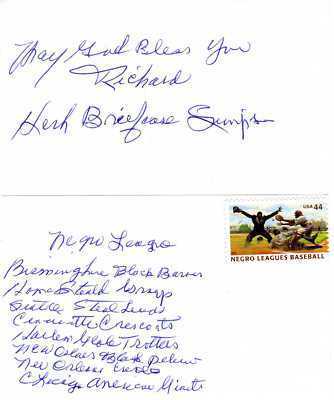 May God Bless You
Richard
Herb Briefcase Simpson
USA 44
NEGRO LEAGUES BASEBALL
Negro League
Birmingham Black Barons
Homestead Grays
Seattle Steel
Cincinnati Crescents
Harlem Globe Trotters
New Orleans Black
New Orleans
Chicago American Giants